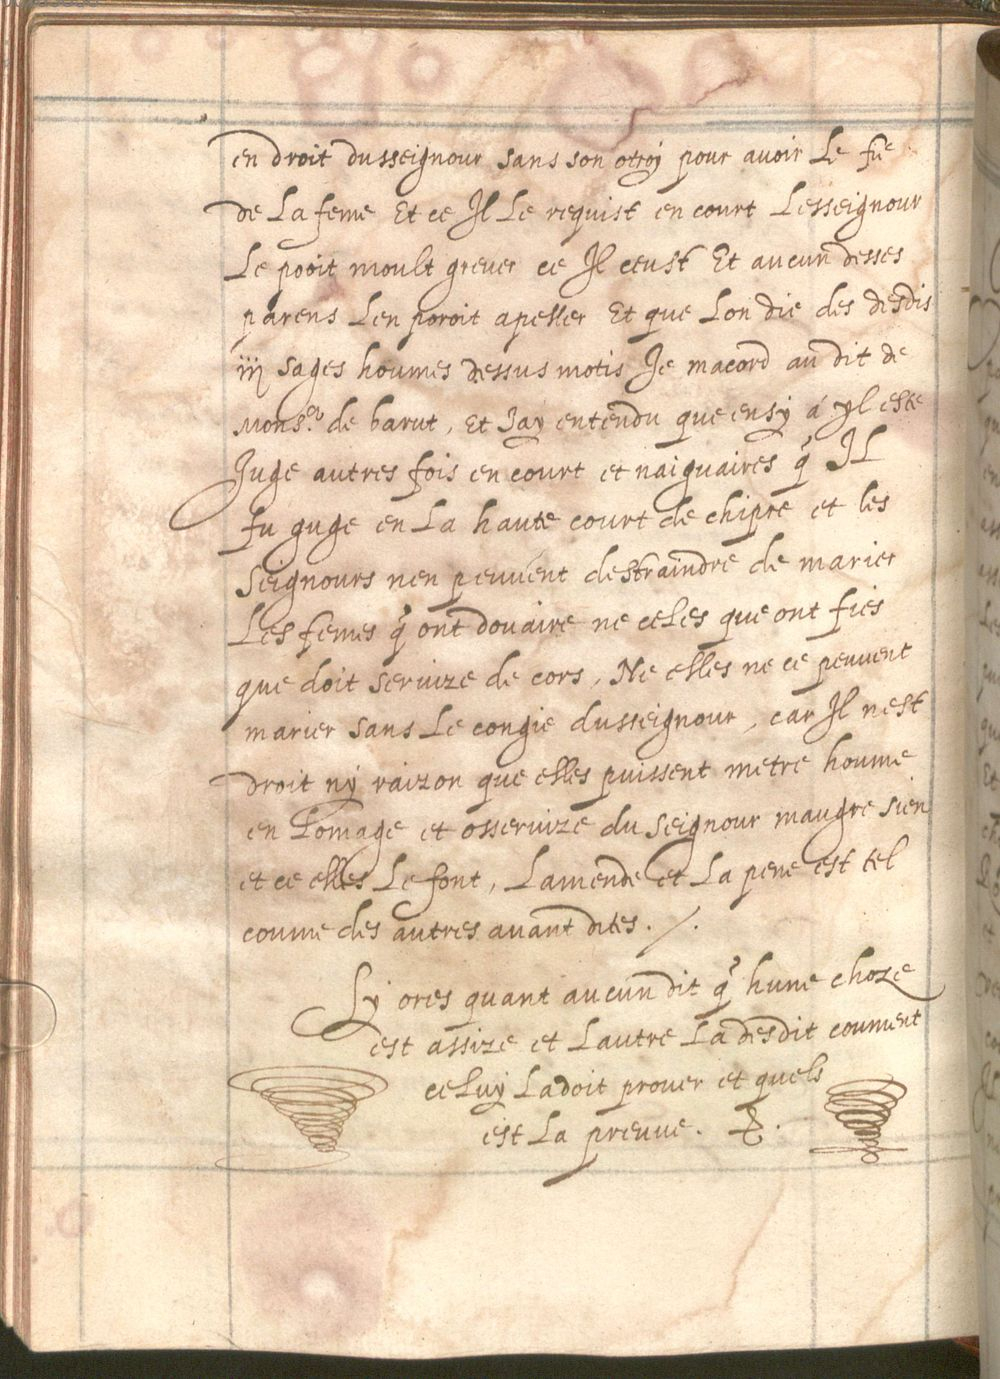 en droit dusseignour sans son otroy pour avoir Le fie
de La feme Et ce Il Le requist en court Lesseignour
Le pooit moult grever ce Il ceust Et aucun desses
parens Len poroit apeller Et que Lon die des desdis
iiij sages houmes dessus motis Je macord au dit de
Mons.r de barut, Et Jay entendu que ensy a yl este
Juge autres fois en court et naiguaires q̄ IL
fu guge en La haute court de chipre et les
seignours nen peuvent destraindre de marier
Les femes q̄ ont douaire ne celes que ont fies
que doit servize de cors, Ne elles ne ce peuvent
marier sans Le congie dusseignour, car Il nest
droit ny raizon que elles puissent metre houme
en Lomage et osservize du seignour maugre sien
et ce elles Le font, Lamende et La pene est tel
coume des autres avant dites. /.
Ly ores quant aucun dit q̄ hune choze
est assize et Lautre La desdit coument
celuy La doit prover et quels
est La preuve.